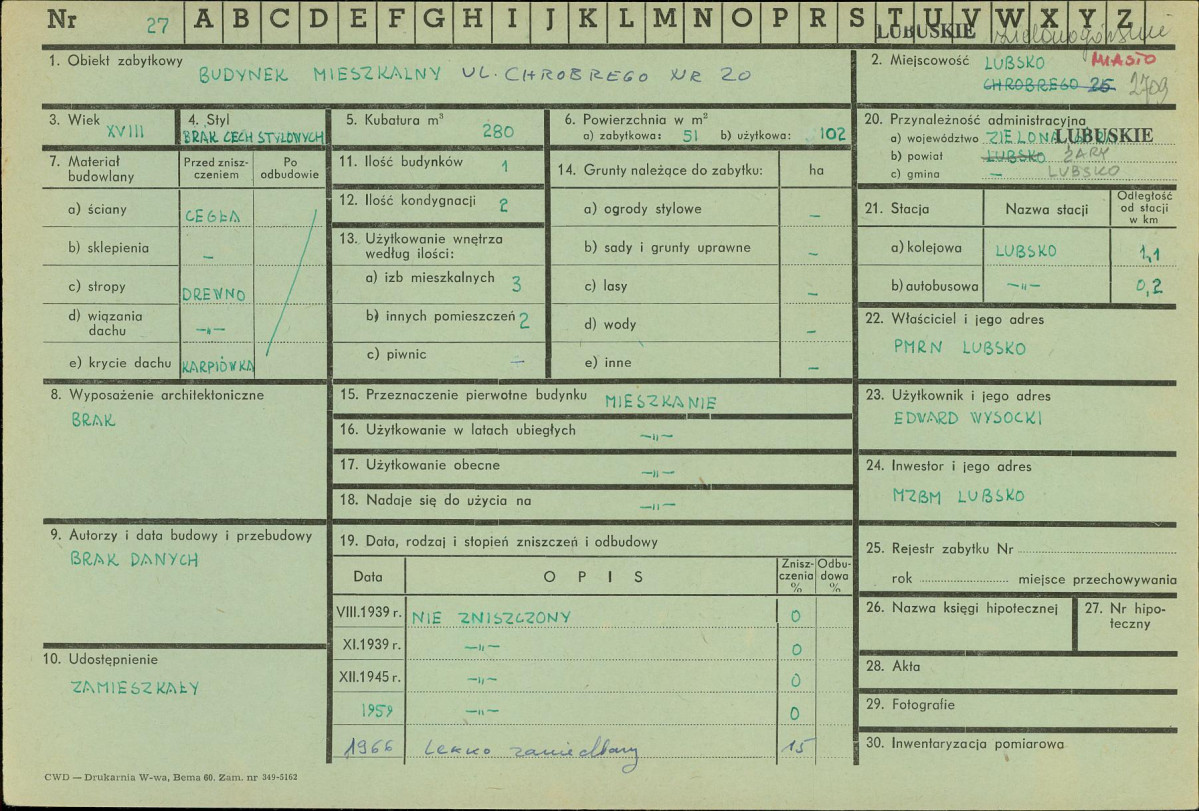 Nr 27 A B C D E F G H I J K L M N O P R S T U V W X Y Z
LUBUSKIE zielonogórskie
1. Obiekt zabytkowy BUDYNEK MIESZKALNY UL. CHROBREGO NR 20
2. Miejscowość LUBSKO MIASTO
CHROBREGO 25 2709
3. Wiek XVIII
4. Styl BRAK CECH STYLOWYCH
5. Kubatura m³ 280
6. Powierzchnia w m²
a) zabytkowa: 51 b) użytkowa: 102
20. Przynależność administracyjna
a) województwo ZIELONA GÓRA LUBUSKIE
b) powiat LUBSKO ŻARY
c) gmina — LUBSKO
7. Materiał budowlany
Przed zniszczeniem
Po odbudowie
a) ściany CEGŁA
b) sklepienia –
c) stropy DREWNO
d) wiązania dachu –„–
e) krycie dachu KARPIÓWKA
11. Ilość budynków 1
12. Ilość kondygnacji 2
13. Użytkowanie wnętrza
według ilości:
a) izb mieszkalnych 3
b) innych pomieszczeń 2
c) piwnic –
14. Grunty należące do zabytku: ha
a) ogrody stylowe –
b) sady i grunty uprawne –
c) lasy –
d) wody –
e) inne –
21. Stacja
Nazwa stacji
Odległość
od stacji
w km
a) kolejowa LUBSKO 1,1
b) autobusowa –„– 0,2
22. Właściciel i jego adres
PMRN LUBSKO
8. Wyposażenie architektoniczne
BRAK
15. Przeznaczenie pierwotne budynku MIESZKANIE
16. Użytkowanie w latach ubiegłych –„–
17. Użytkowanie obecne –„–
18. Nadaje się do użycia na –„–
23. Użytkownik i jego adres
EDWARD WYSOCKI
24. Inwestor i jego adres
MZBM LUBSKO
9. Autorzy i data budowy i przebudowy
BRAK DANYCH
10. Udostępnienie
ZAMIESZKAŁY
19. Data, rodzaj i stopień zniszczeń i odbudowy
Data OPIS Zniszczenia % Odbudowa %
VIII.1939 r. NIE ZNISZCZONY 0
XI.1939 r. –„– 0
XII.1945 r. –„– 0
1959 –„– 0
1966 Lekko zaniedbany 15
25. Rejestr zabytku Nr
rok miejsce przechowywania
26. Nazwa księgi hipotecznej
27. Nr hipoteczny
28. Akta
29. Fotografie
30. Inwentaryzacja pomiarowa
CWD — Drukarnia W-wa, Bema 60. Zam. nr 349-5162